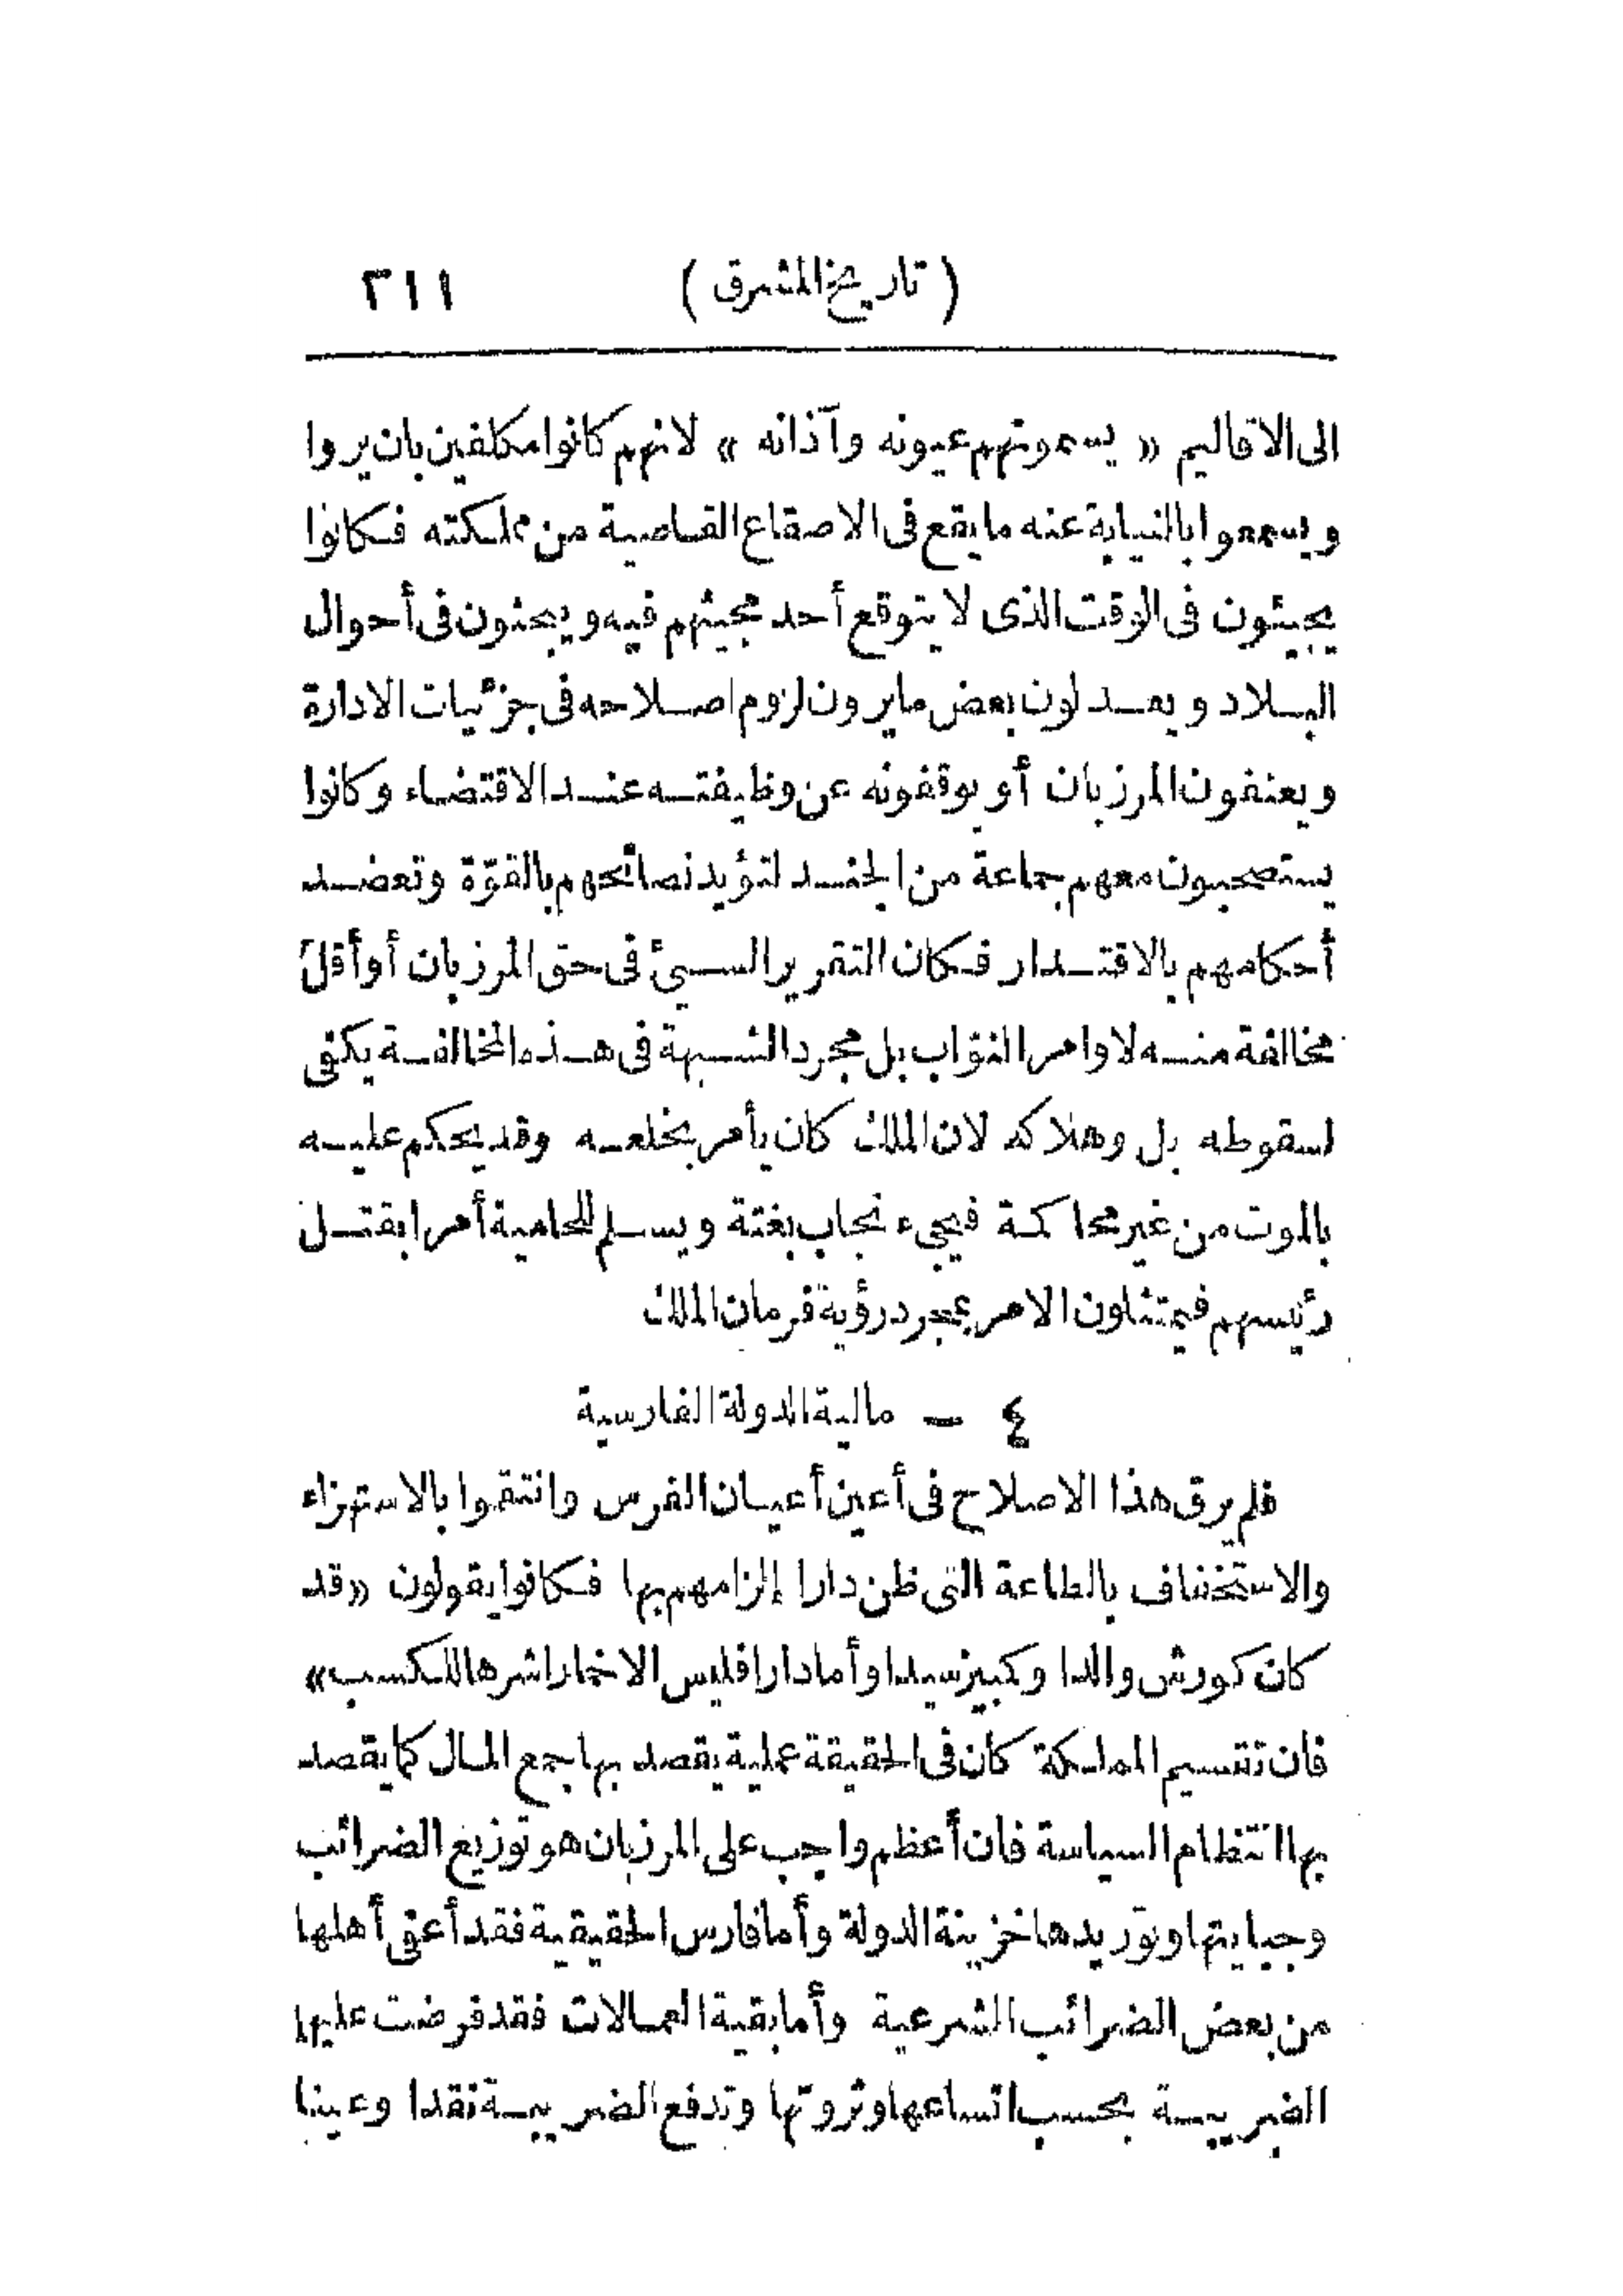 (تاريخ المشرق) ٣١١
الى الاقاليم «يسمونهم عيونه وآذانه» لانهم كانوا مكلفين بان يروا
ويسمعوا بالنيابة عنه ما يقع فى الاصقاع القاصية من مملكته فكانوا
يجيئون فى الوقت الذى لا يتوقع أحد مجيئهم فيه ويبحثون فى أحوال
البلاد ويعدلون بعض ما يرون لزوم اصلاحه فى جزئيات الادارة
ويعنفون المرزبان أو يوقفونه عن وظيفته عند الاقتضاء وكانوا
يستصحبون معهم جماعة من الجند لتؤيد نصائحهم بالقوّة وتعضد
أحكامهم بالاقتدار فكان التقرير السيئ فى حق المرزبان أو أقلّ
مخالفة منه لاوامر النوّاب بل مجرد الشبهة فى هذه المخالفة يكفى
لسقوطه بل وهلاكه لان الملك كان يأمر بخلعه وقد يحكم عليه
بالموت من غير محاكمة فيجىء نجاب بغتة ويسلم للحامية أمرا بقتل
رئيسهم فيمتثلون الامر بمجرد رؤية فرمان الملك
٤ - مالية الدولة الفارسية
فلم يرق هذا الاصلاح فى أعين أعيان الفرس وانتقموا بالاستهزاء
والاستخفاف بالطاعة التى ظن دارا إلزامهم بها فكانوا يقولون «قد
كان كورش والدا وكمبيز سيدا وأما دارا فليس الا خمارا شرها للكسب»
فان تقسيم المملكة كان فى الحقيقة عملية يقصد بها جمع المال كما يقصد
بها انتظام السياسة فان أعظم واجب على المرزبان هو توزيع الضرائب
وجبايتها وتوريدها خزينة الدولة وأما فارس الحقيقية فقد أعفى أهلها
من بعض الضرائب الشرعية وأما بقية العمالات فقد فرضت عليها
الضريبة بحسب اتساعها وثروتها وتدفع الضريبة نقدا وعينا